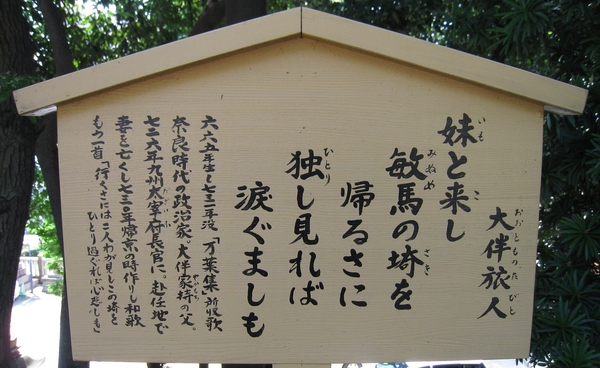 大伴旅人
おおとものたびと
妹と来し
いも
こ
敏馬の埼を
みぬめ
さき
帰るさに
独し見れば
ひとり
涙ぐましも
六六五年生〜七三一年没、「万葉集」所収歌
奈良時代の政治家。大伴家持の父。
七二六年九州大宰府長官に、赴任地で
妻を亡くし七三〇年帰京の時作りし和歌
もう一首「行くさには二人わが見しこの埼を
ひとり過ぐれば心悲しも」